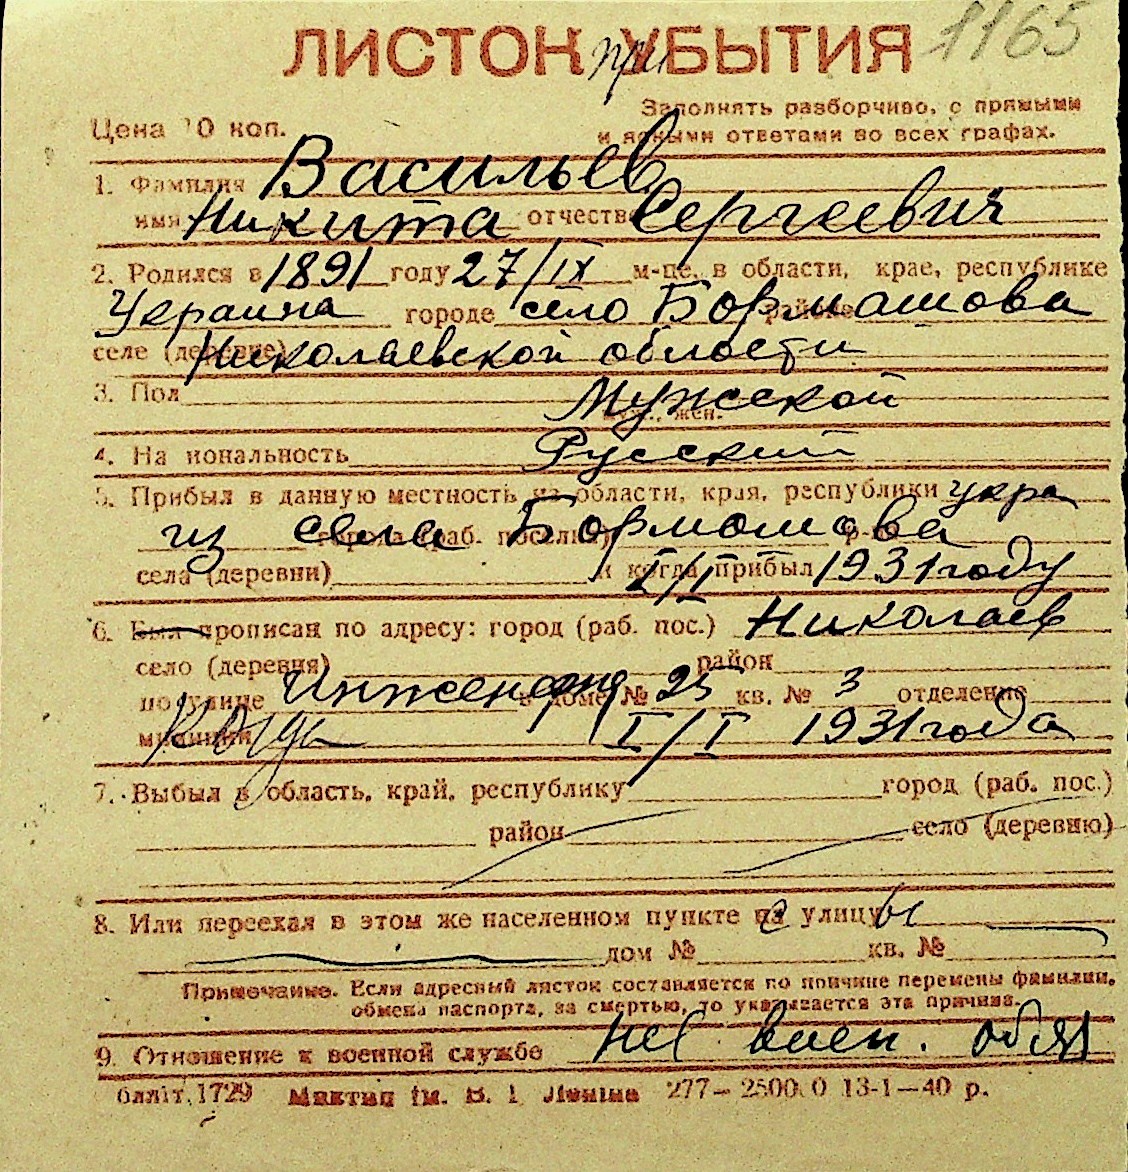 ЛИСТОК при УБЫТИЯ 1165
Цена 10 коп. Заполнять разборчиво, с прямыми
и ясными ответами во всех графах.
1. Фамилия Васильев
имя Никита отчество Сергеевич
2. Родился в 1891 году 27/IX м-це, в области, крае, республике
Украина городе село Бормашова районе
селе (деревне) Николаевской области
3. Пол Мужской
муж., жен.
4. Национальность Русский
5. Прибыл в данную местность из области, края, республики укра
из села Бормашова города (раб. поселка) р-на
села (деревни) и когда прибыл I/I 1931 году
6. Был прописан по адресу: город (раб. пос.) Николаев
село (деревня) район
по улице Инженерная в доме № 25 кв. № 3 отделение
милиции I/I 1931 года
7. Выбыл в область, край, республику город (раб. пос.)
район село (деревню)
8. Или переехал в этом же населенном пункте на улицу
дом № кв. №
Примечание. Если адресный листок составляется по причине перемены фамилии,
обмена паспорта, за смертью, то указывается эта причина.
9. Отношение к военной службе нев воен. обяз
блліт. 1729 ім. В. І. Леніна 277— 25000 13-1—40 р.